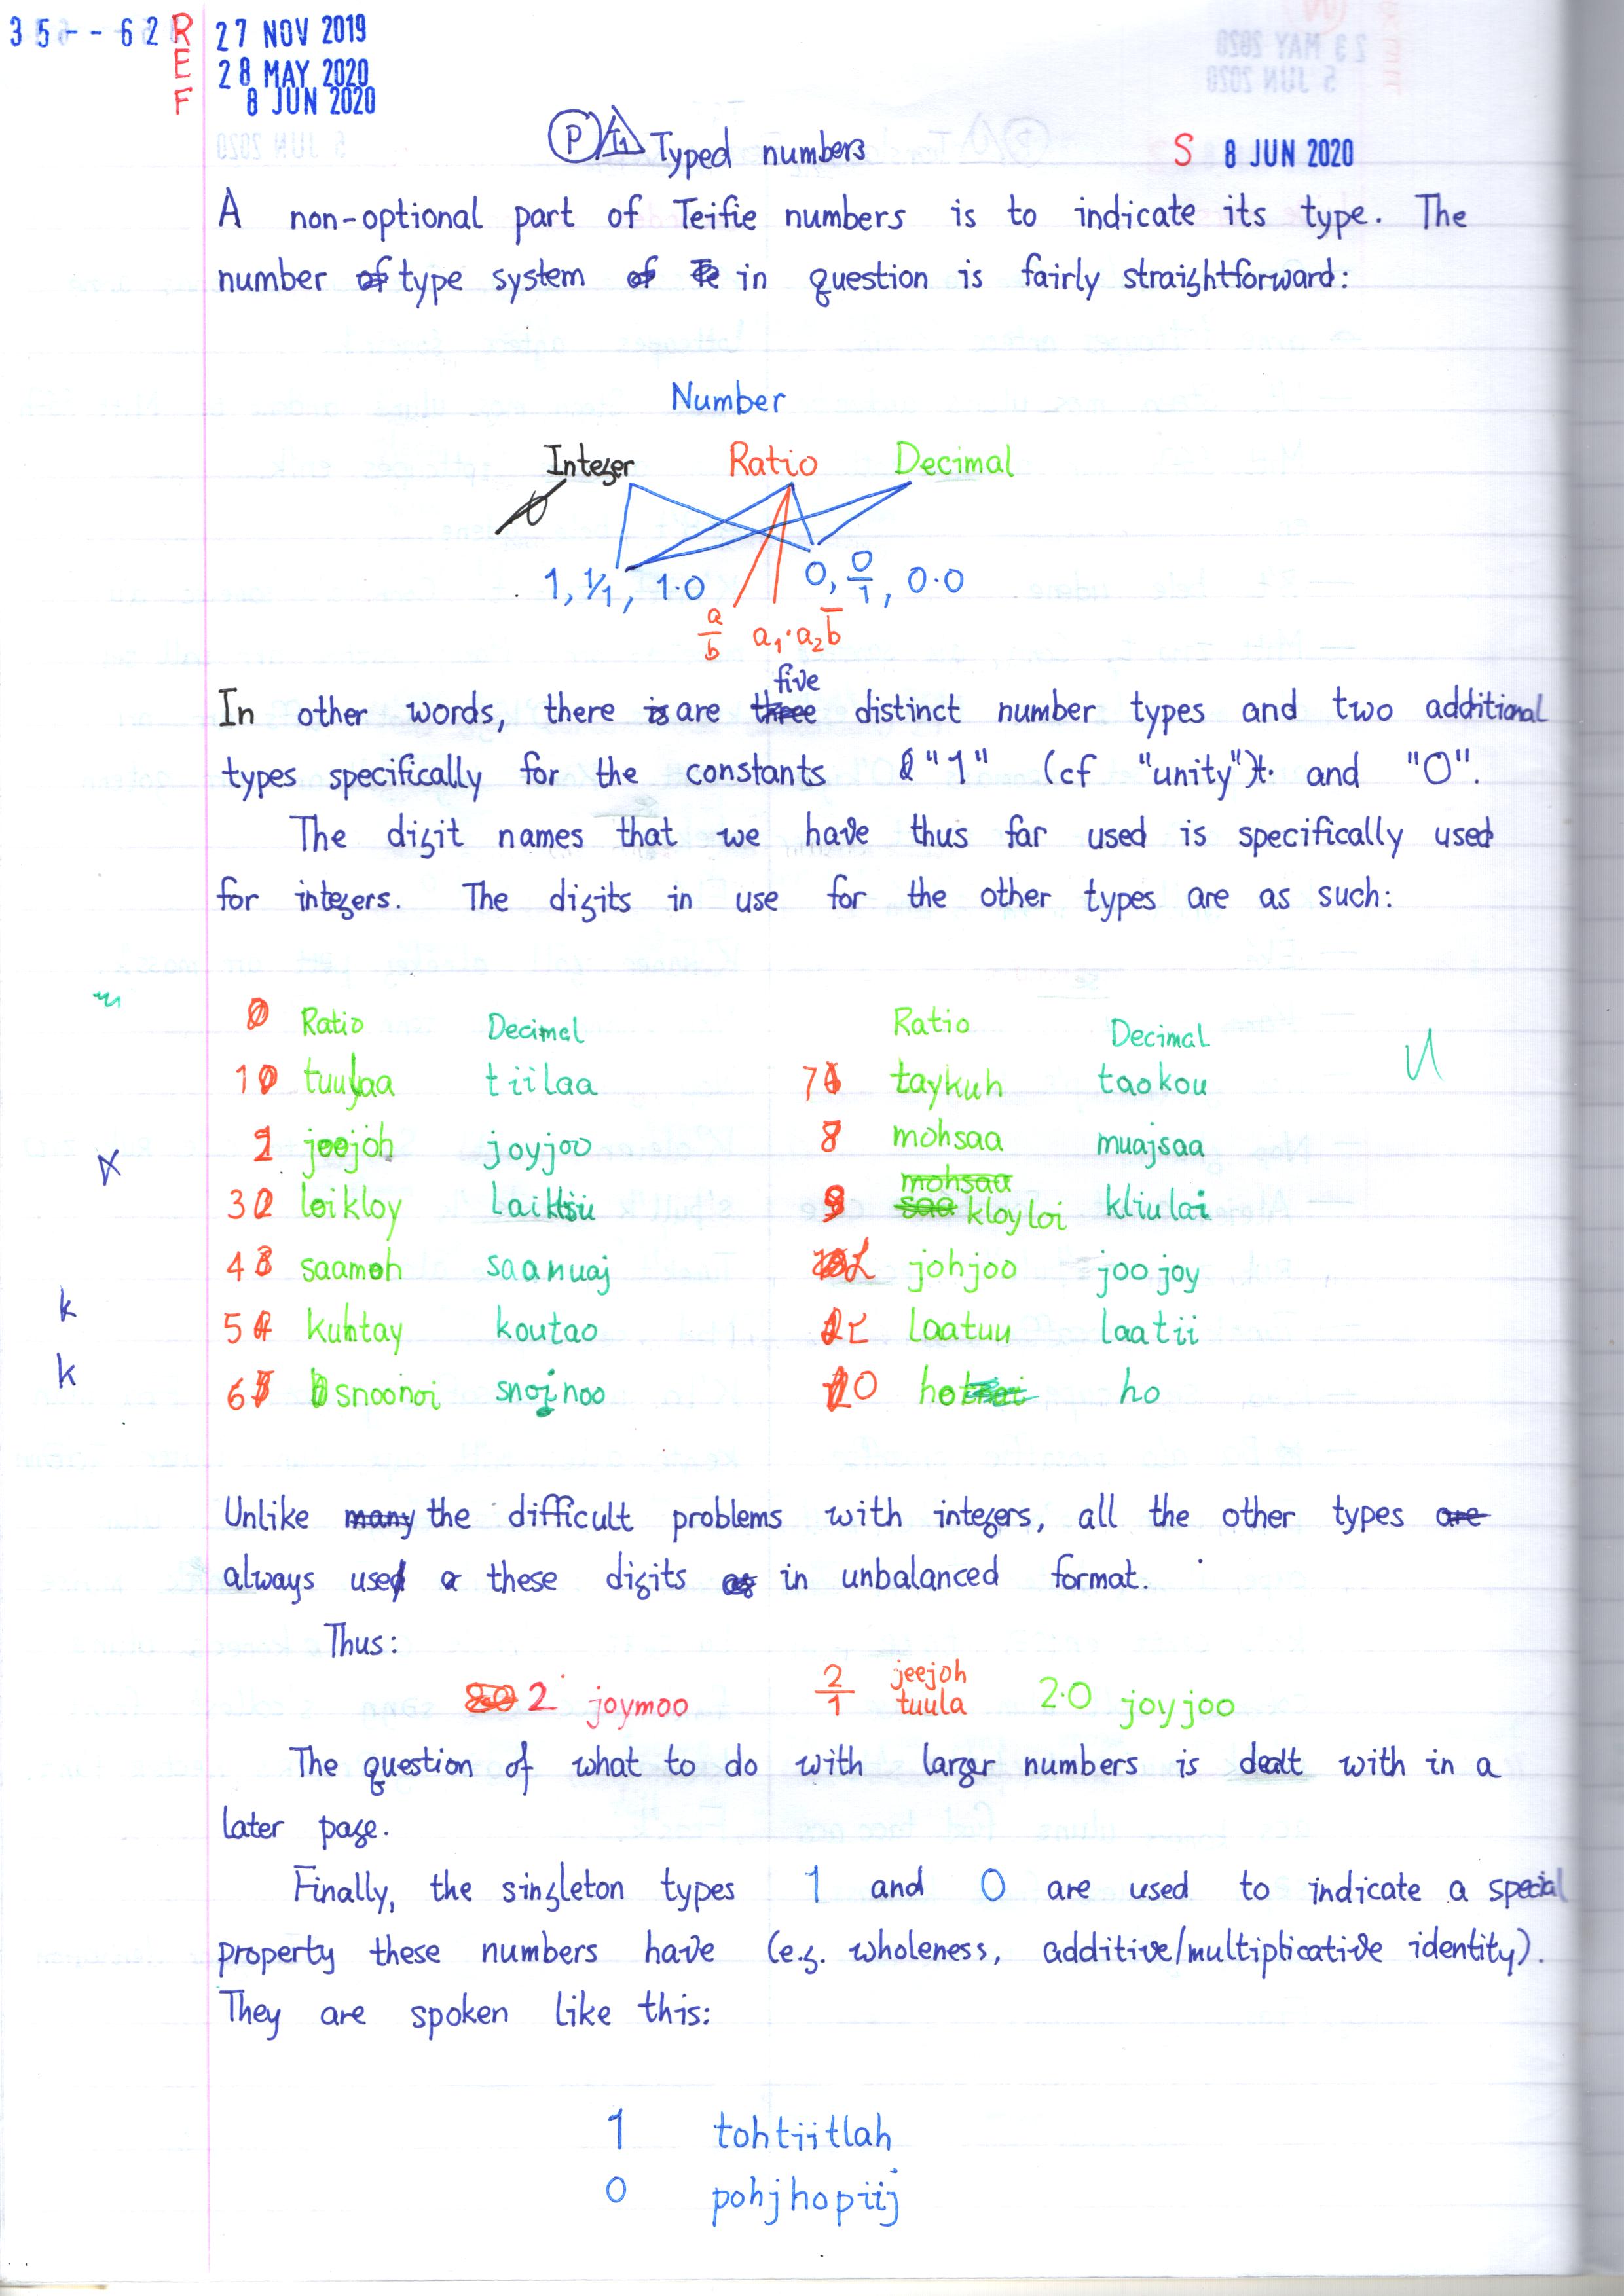 35--62 REF 27 NOV 2019
28 MAY 2020
8 JUN 2020
P I1 Typed numbers S 8 JUN 2020
A non-optional part of Teifie numbers is to indicate its type. The
number of type system of in question is fairly straightforward:
Number
Integer Ratio Decimal
1, 1/1, 1.0 0, 0/1, 0.0
a/b a₁.a₂b̅
five
In other words, there is are three distinct number types and two additional
types specifically for the constants "1" (cf "unity") and "0".
The digit names that we have thus far used is specifically used
for integers. The digits in use for the other types are as such:
Ratio Decimal Ratio Decimal
1 tuulaa tiilaa 7 taykuh taokou
2 joejoh joyjoo 8 mohsaa muajsaa
3 loikloy 9 mohsaa saa kloyloi kliulai
4 saamoh saanuaj johjoo joojoy
5 kuhtay koutao laatuu laatii
6 snoonoi snojnoo 10 ho ho
k
k
Unlike many the difficult problems with integers, all the other types are
always use these digits as in unbalanced format.
Thus:
2 joymoo 2/1 jeejoh tuula 2.0 joyjoo
The question of what to do with larger numbers is dealt with in a
later page.
Finally, the singleton types 1 and 0 are used to indicate a special
property these numbers have (e.g. wholeness, additive/multiplicative identity).
They are spoken like this:
1 tohtiitlah
0 pohjhopiij